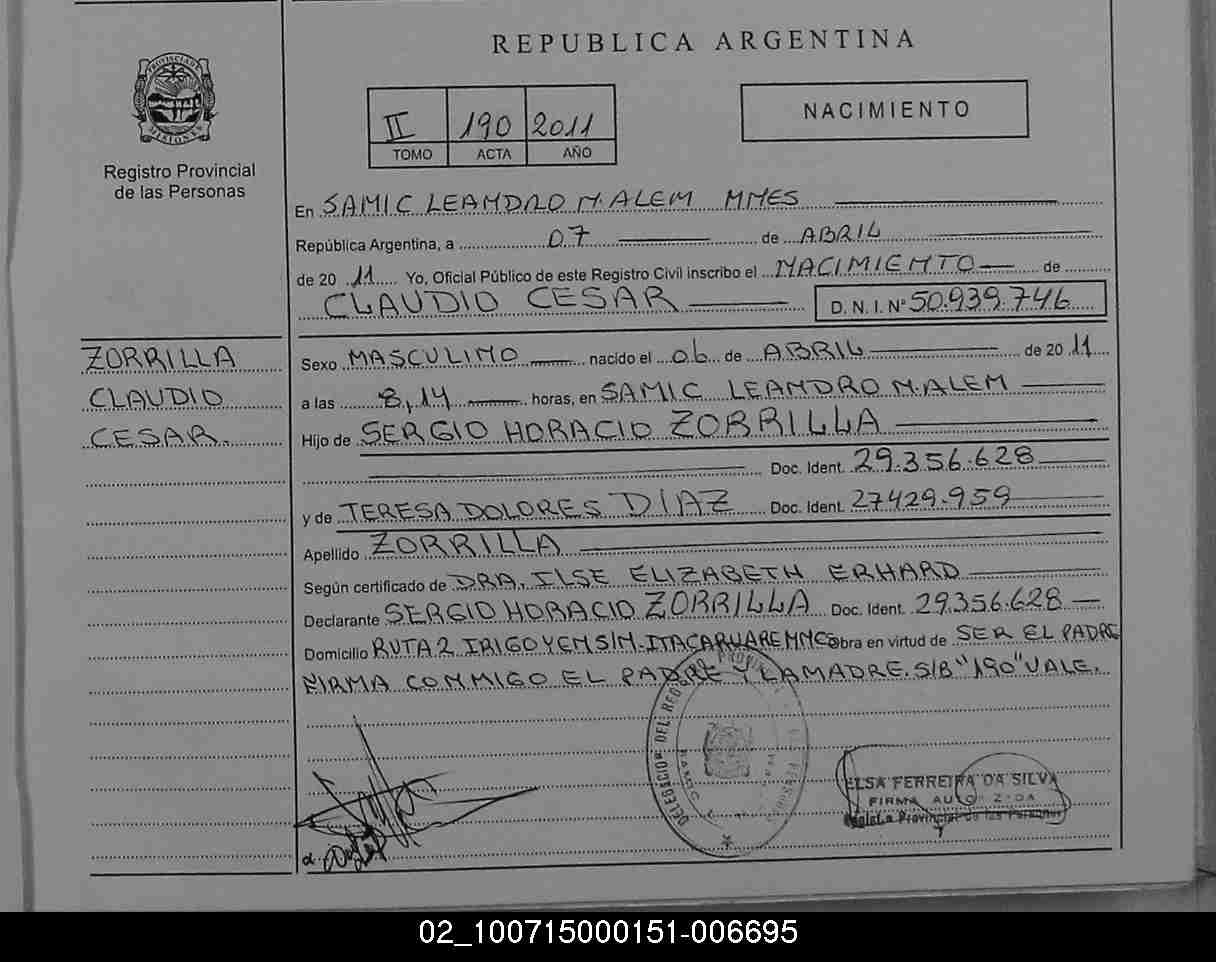 REPUBLICA ARGENTINA
PROVINCIA DE MISIONES
Registro Provincial
de las Personas
II 190 2011
TOMO ACTA AÑO
NACIMIENTO
En SAMIC LEANDRO N. ALEM MNES
República Argentina, a 07 de ABRIL
de 20 11 Yo, Oficial Público de este Registro Civil inscribo el NACIMIENTO de
CLAUDIO CESAR D. N. I. Nº 50.939.746
ZORRILLA
CLAUDIO
CESAR.
Sexo MASCULINO nacido el 06 de ABRIL de 20 11
a las 8,14 horas, en SAMIC LEANDRO N. ALEM
Hijo de SERGIO HORACIO ZORRILLA
Doc. Ident. 29.356.628
y de TERESA DOLORES DIAZ Doc. Ident. 27429.959
Apellido ZORRILLA
Según certificado de DRA. ILSE ELIZABETH ERHARD
Declarante SERGIO HORACIO ZORRILLA Doc. Ident. 29.356.628
Domicilio RUTA 2 IRIGOYEN S/N. ITACARUARE MNES obra en virtud de SER EL PADRE
FIRMA CONMIGO EL PADRE Y LA MADRE. S/B "190" VALE.
DELEGACION DEL REG
ELSA FERREIRA DA SILVA
FIRMA
Provincial de las Personas
02_100715000151-006695